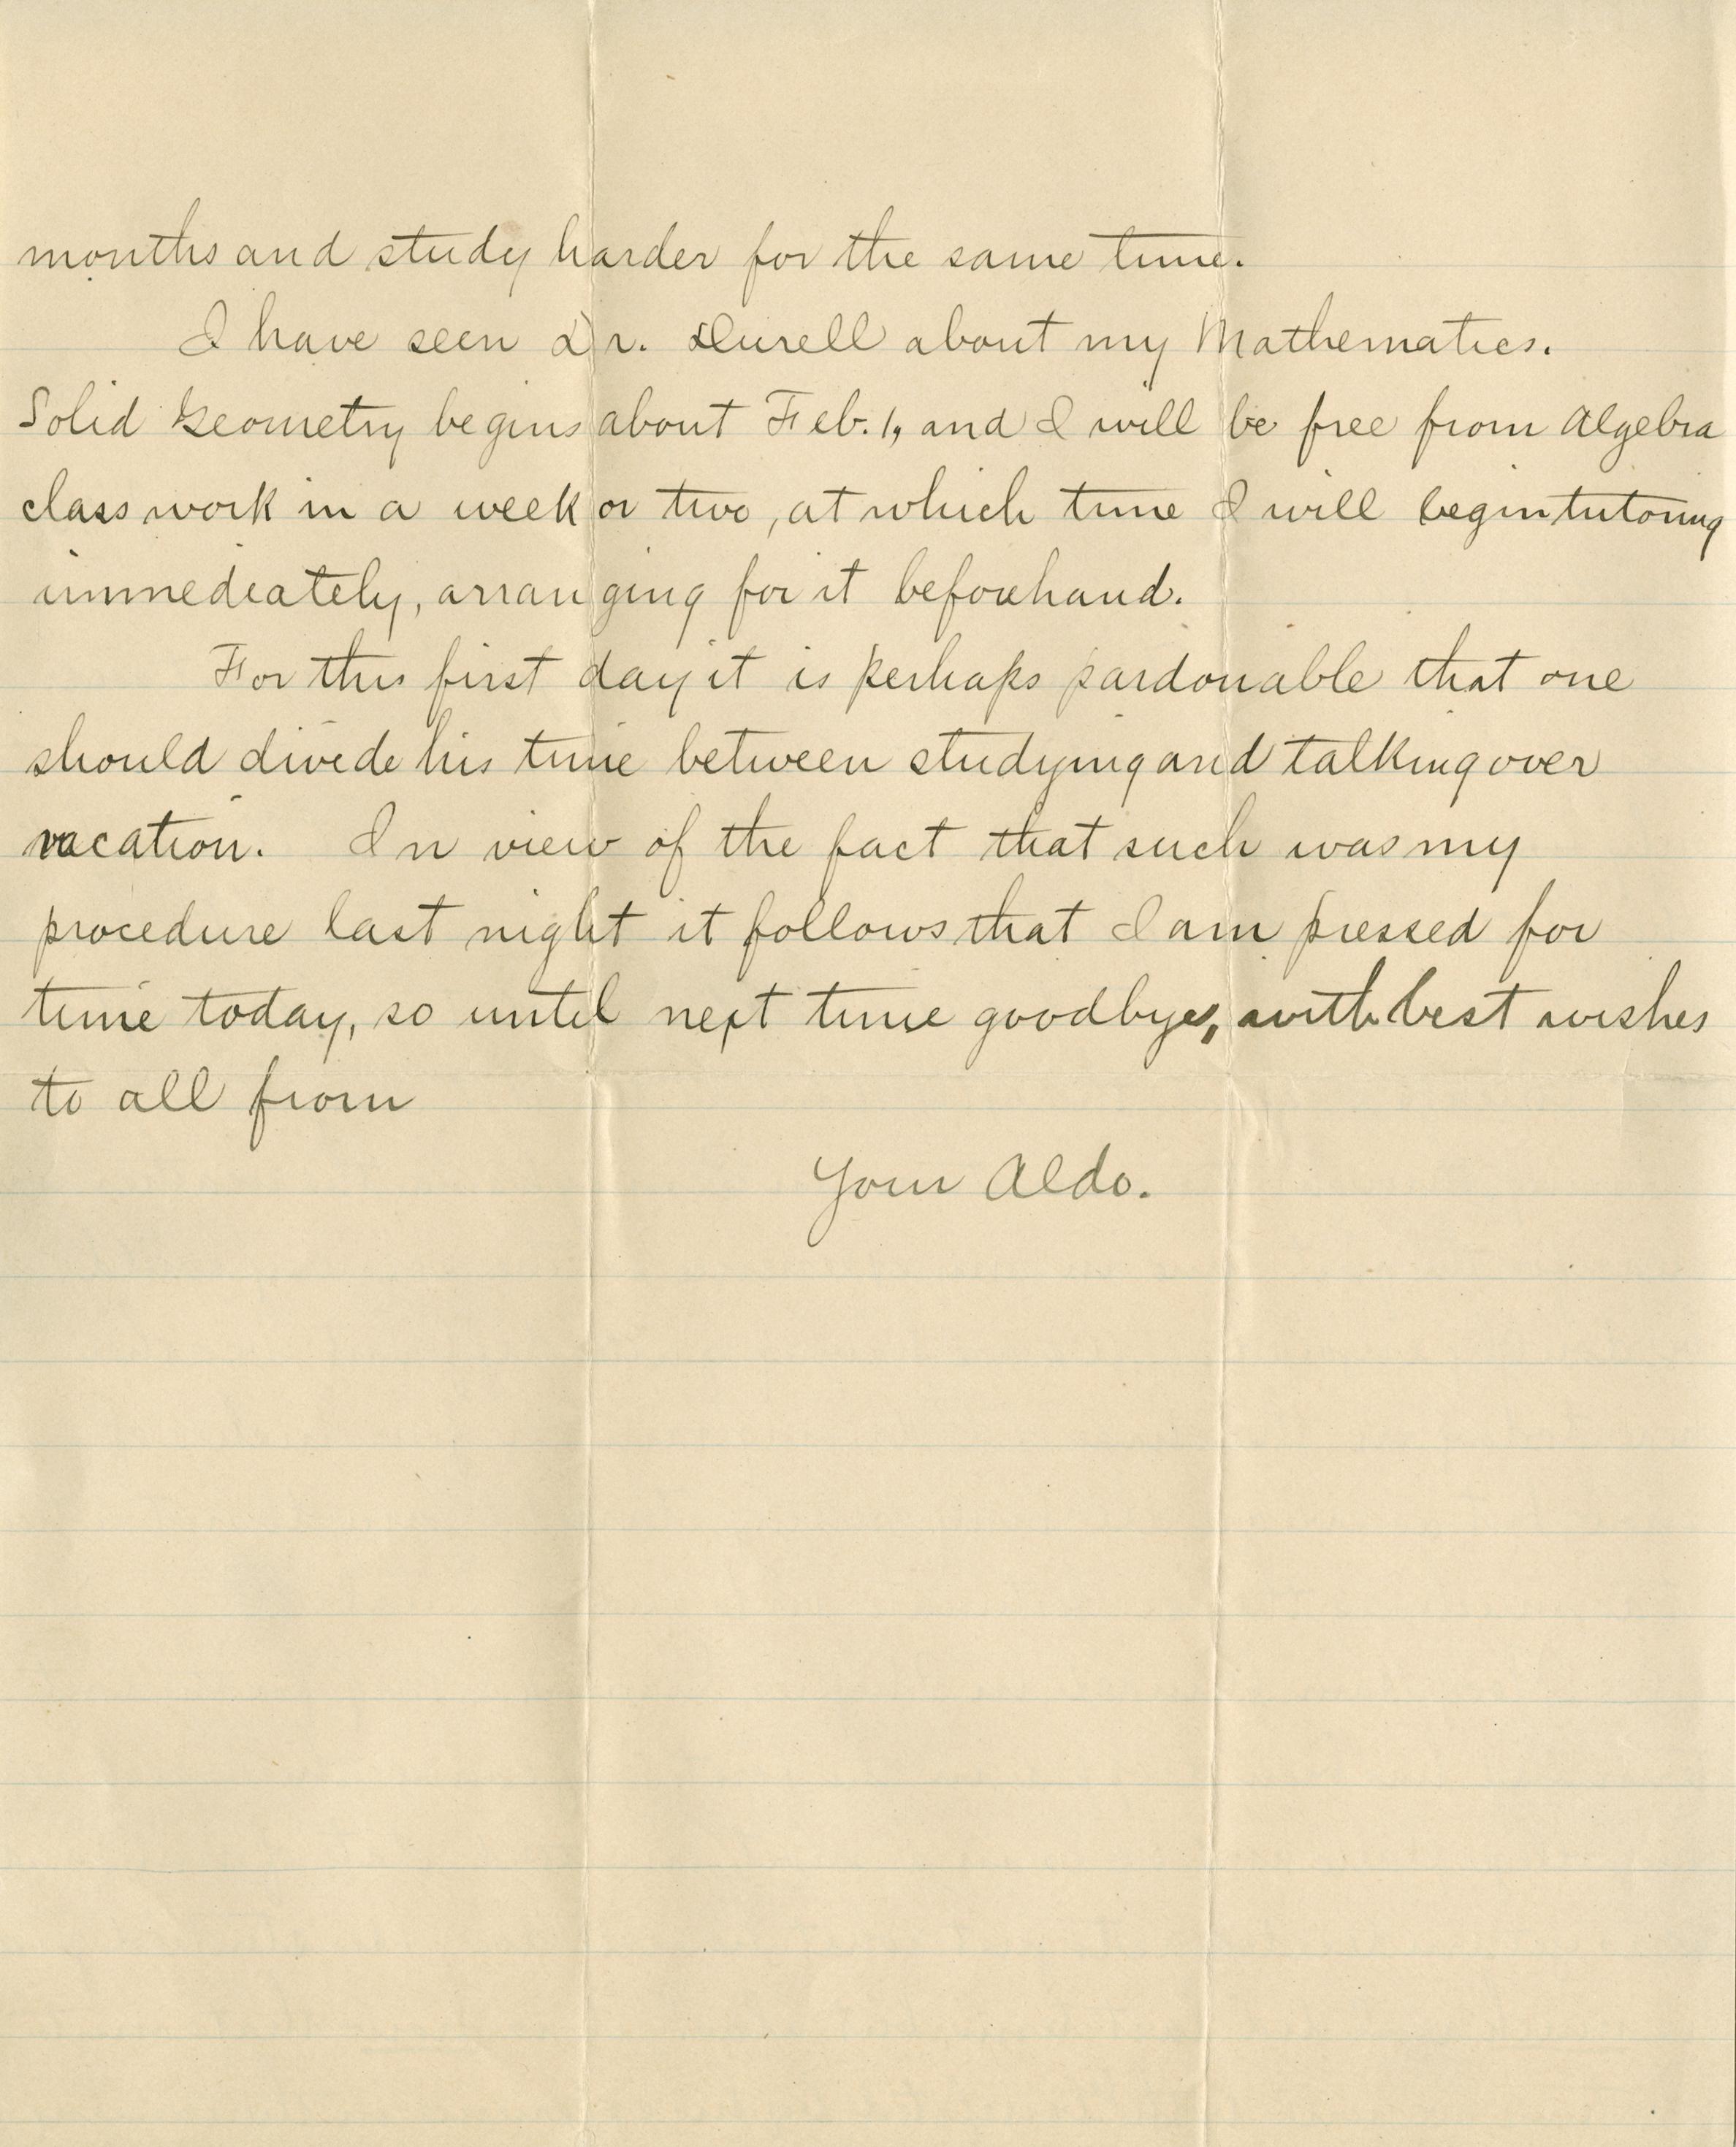 months and study harder for the same time.
I have seen Dr. Durell about my Mathematics.
Solid Geometry begins about Feb. 1, and I will be free from Algebra
class work in a week or two, at which time I will begin tutoring
immediately, arranging for it beforehand.
For this first day it is perhaps pardonable that one
should divide his time between studying and talking over
vacation. In view of the fact that such was my
procedure last night it follows that I am pressed for
time today, so until next time goodbye, with best wishes
to all from
Your Aldo.